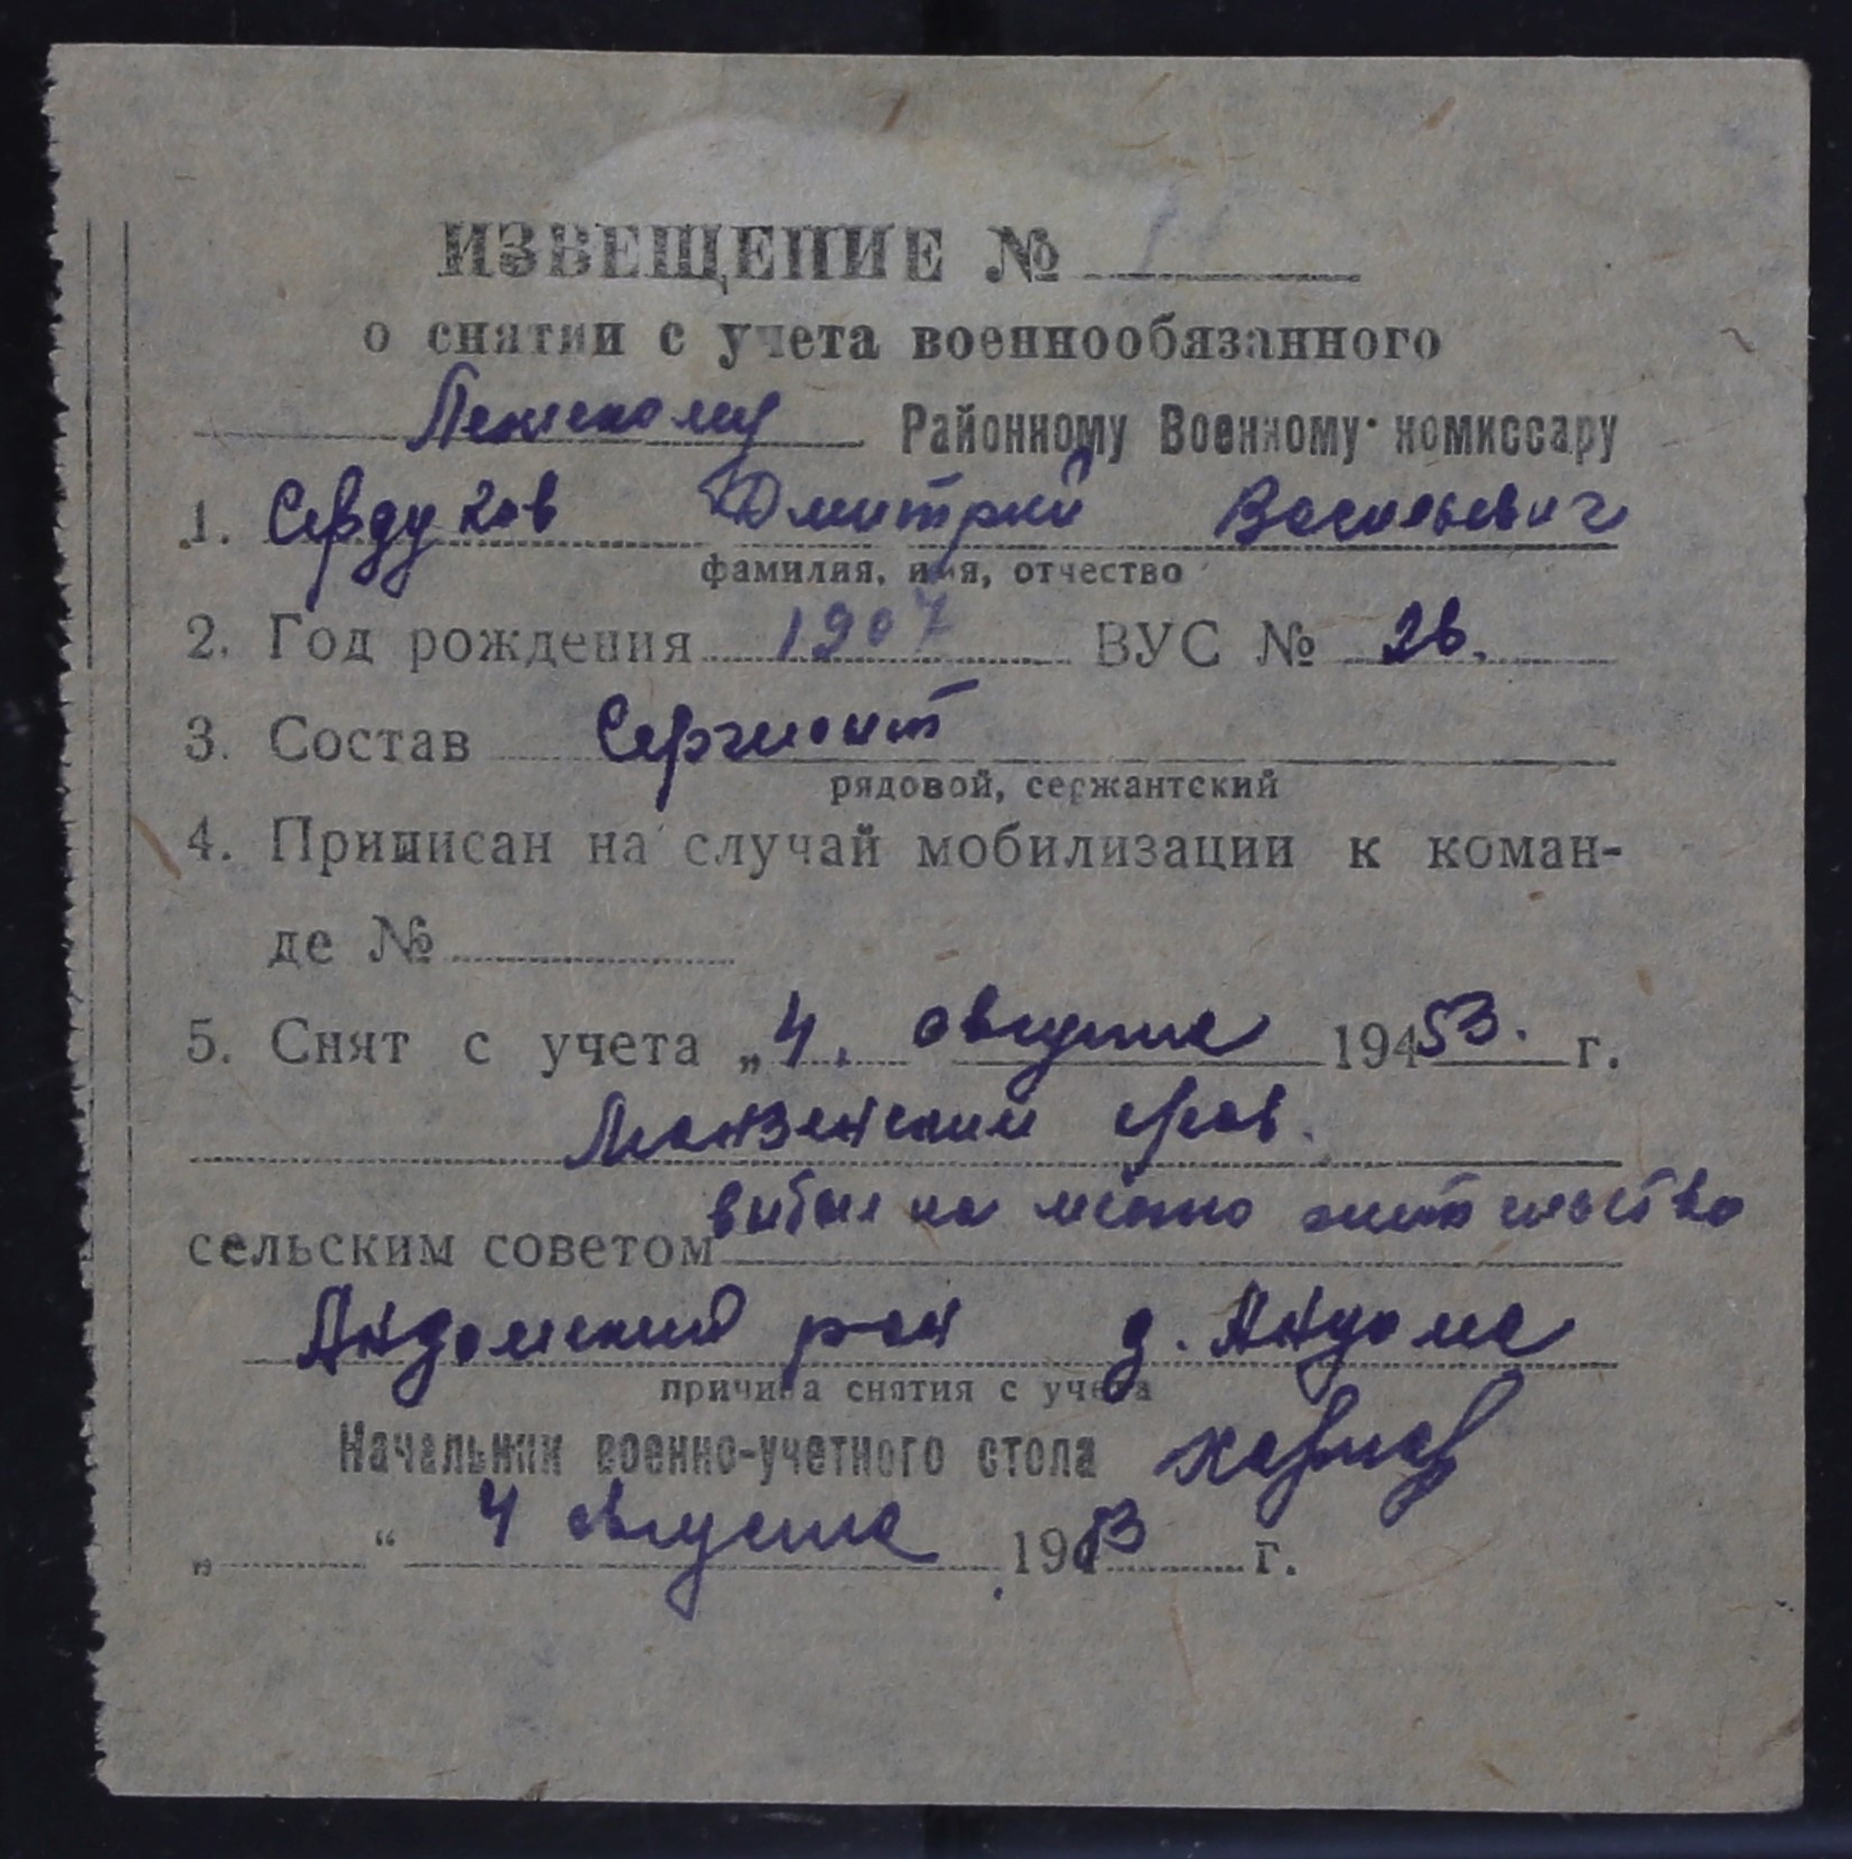 ИЗВЕЩЕНИЕ №
о снятии с учета военнообязанного
Районному Военному комиссару
1. Сердуков Дмитрий Васильевич
фамилия, имя, отчество
2. Год рождения 1907 ВУС № 26.
3. Состав Сержант
рядовой, сержантский
4. Приписан на случай мобилизации к коман-
де №
5. Снят с учета „4. августа 19453. г.
сельским советом выбыл на место жительство
Андомский район д. Андома
причина снятия с учета
Начальник военно-учетного стола
„ “ 4 августа 1953 г.